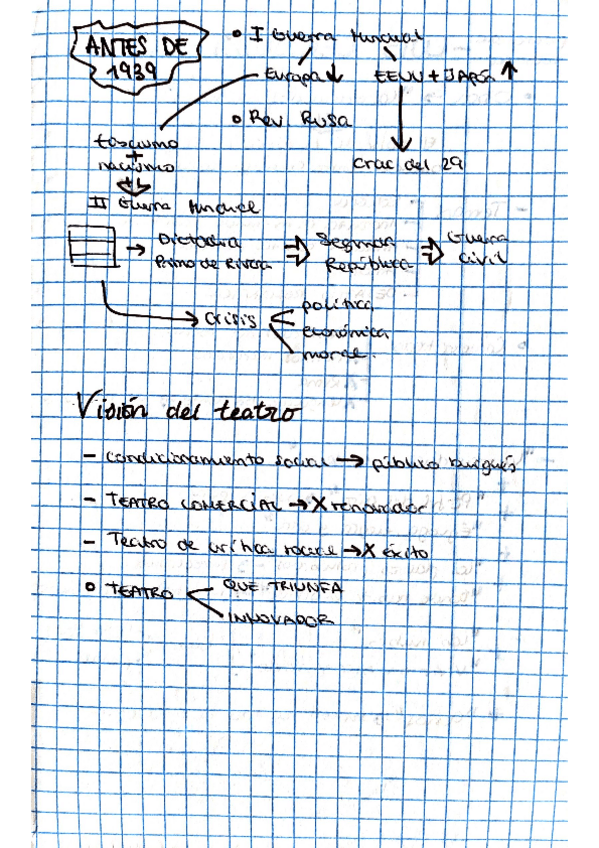 ANTES DE
1939
• I Guerra Mundial
Europa ↓ EEUU + JAPÓN ↑
• Rev. Rusa
fascismo
+
nacismo
crac del 29
II Guerra Mundial
→ Dictadura
Primo de Rivera
⇒ Segunda
República
⇒ Guerra
Civil
→ Crisis
política
económica
moral
Visión del teatro
- Condicionamiento social → público burgués
- TEATRO COMERCIAL → X renovador
- Teatro de crítica social → X éxito
• TEATRO
QUE TRIUNFA
INNOVADOR